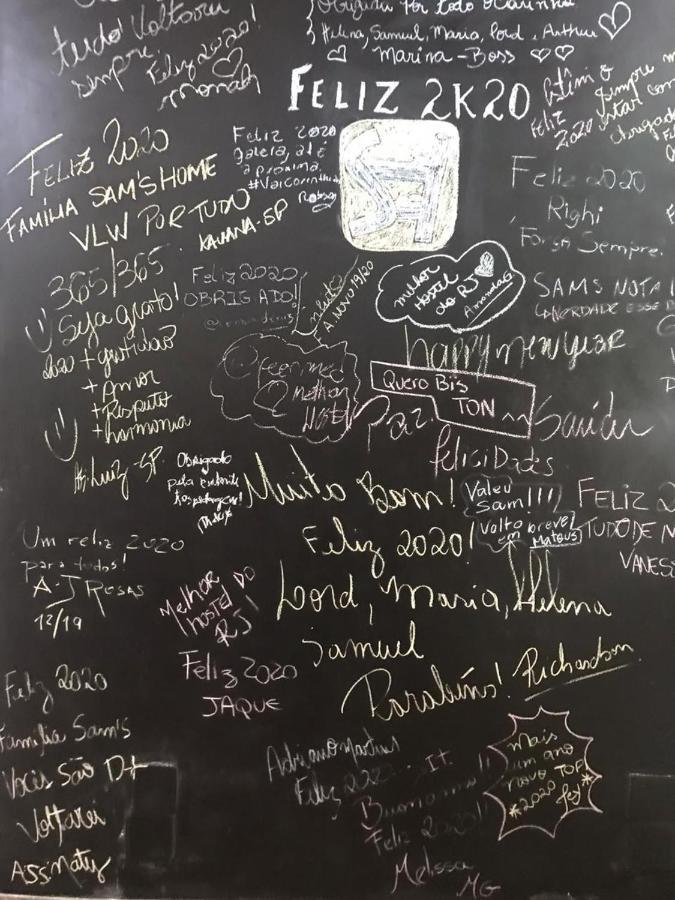 tudo! Voltarei
sempre.
Feliz 2020!
Monah
Obrigada por todo o carinho
Helena, Samuel, Maria, Lord, Arthur
Marina-Boss
FELIZ 2K20
FELIZ
2020
sempre
estar com
FELIZ 2020
FAMÍLIA SAM'S HOME
VLW POR TUDO
KAUANA-SP
Feliz 2020
galera, até
a próxima.
#VaiCorinthians
SH
Feliz 2020
Righi
Força Sempre.
365/365
Seja grato!
2020 + gratidão
+ Amor
+ Respeito
+ harmonia
Luiz-SP
Feliz 2020
OBRIGADO!
A. NOVO 19/20
melhor
Hostel
do RJ
Amandão
SAMS NOTA 1
happy new year
melhor
Hostel
Quero Bis
TON
Paz
Saúde
felicidades
Obrigado
pela
Muito Bom!
Feliz 2020!
Lord, Maria, Helena
Samuel
Parabéns! Richardson
Valeu
Sam!!!
Volto breve!
em Mateus
FELIZ 2
TUDO DE
VANES
Um feliz 2020
para todos!
A.J ROSAS
12/19
Melhor
hostel do
RJ!
Feliz 2020
JAQUE
Feliz 2020
Família Sam's
Vocês São D+
Voltarei
Adriano Martins
Feliz 2020
Feliz 2020!!
Melissa
MG
mais
um ano
novo TOP
*2020*